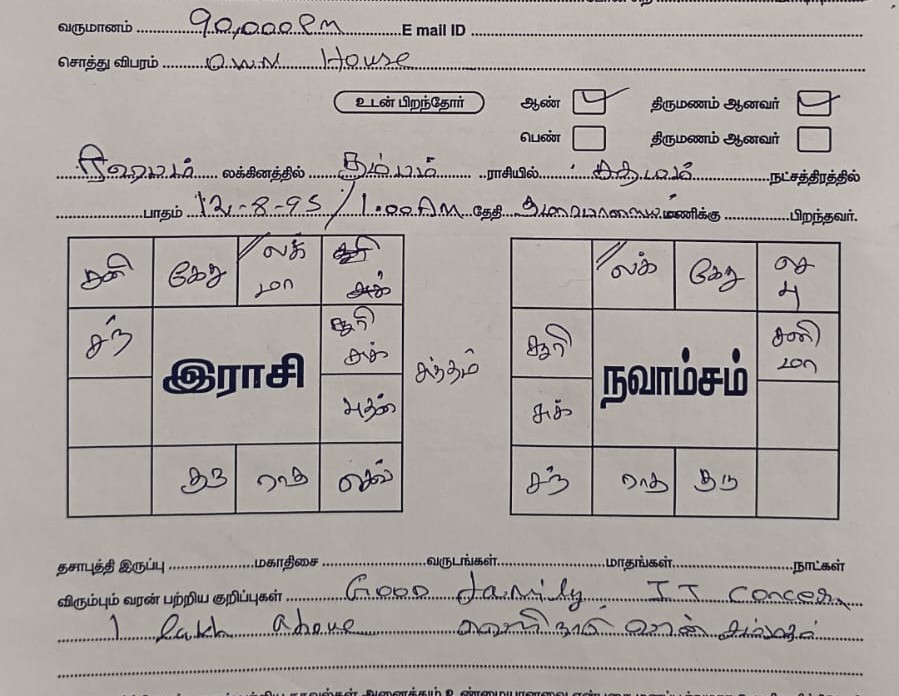 வருமானம் 90,000 PM E mail ID
சொத்து விபரம் Own House
உடன் பிறந்தோர் ஆண் திருமணம் ஆனவர்
பெண் திருமணம் ஆனவர்
ரிஷபம் லக்கினத்தில் கும்பம் ராசியில் சதயம் நட்சத்திரத்தில்
பாதம் 12-8-95 / 1.00 AM தேதி மணிக்கு பிறந்தவர்.
சனி கேது லக் மா சூரி சுக்
சந் சூரி சுக்
இராசி
புதன்
குரு ராகு செவ்
சுத்தம்
லக் கேது செ பு
சூரி சனி மா
நவாம்சம்
சுக்
சந் ராகு குரு
தசாபுத்தி இருப்பு மகாதிசை வருடங்கள் மாதங்கள் நாட்கள்
விரும்பும் வரன் பற்றிய குறிப்புகள் Good family IT
1 Lakh Above வெளிநாடு